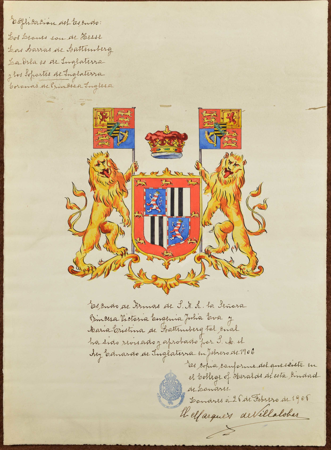 Explicacion del Escudo:
Los Leones son de Hesse
Las Barras de Battenberg
La orla es de Inglaterra
y los soportes de Inglaterra
Coronas de Princesa Inglesa
Escudo de Armas de S.A.R. la Señora
Princesa Victoria Eugenia Julia Eva y
Maria Cristina de Battenberg tal cual
ha sido revisado y aprobado por S.M. el
Rey Eduardo de Inglaterra en febrero de 1906
Es copia conforme del que existe en
el College of Heralds de esta Ciudad
de Londres.
Londres a 26 de Febrero de 1906
El Marques de Villalobar